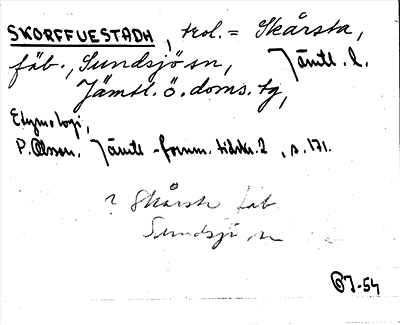 SKORFFUESTADH, trol. = Skårsta,
fäb., Sundsjö sn, Jämtl. l.
Jämtl. ö. doms. tg,
Etymologi,
P. Olsson. Jämtl - fornm. tidskr. 2, s. 171.
? Skårsta fäb
Sundsjö sn
PJ-54